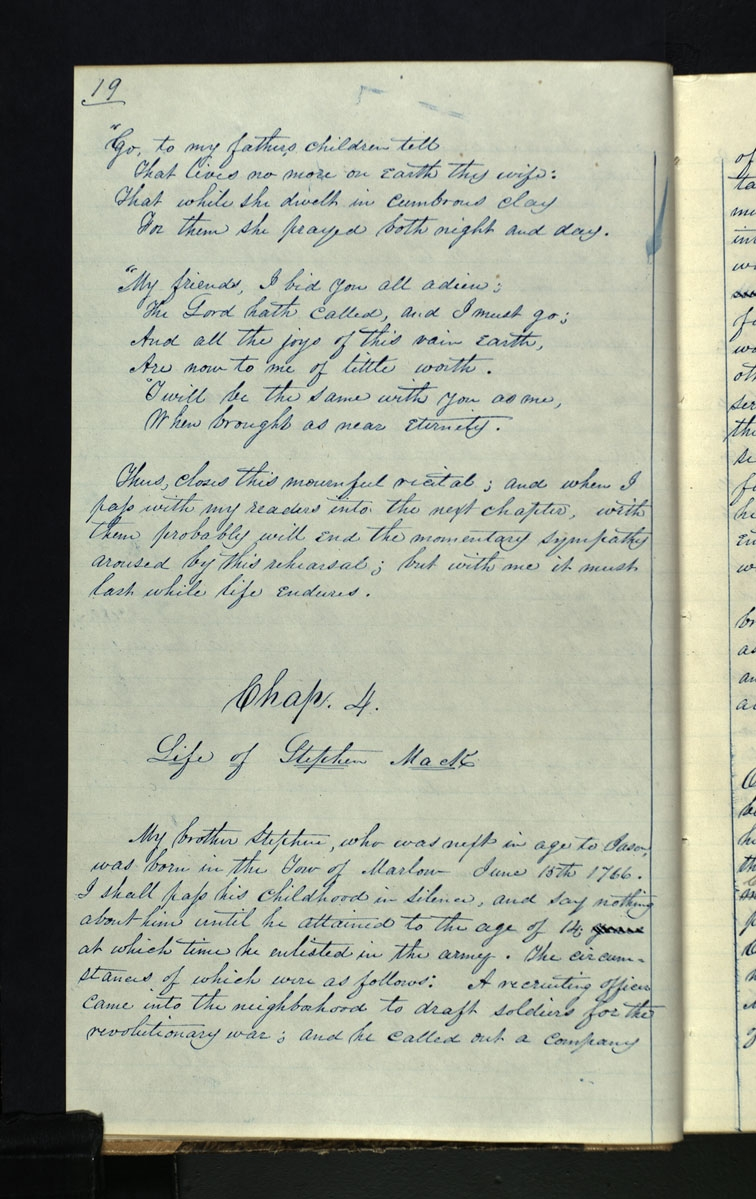 19
"Go, to my fathers, children tell
That lives no more on Earth thy wife:
That while she dwelt in cumbrous clay
For them she prayed both night and day.
"My friends, I bid you all adieu;
The Lord hath called, and I must go;
And all the joys of this vain Earth,
Are now to me of little worth.
'T will be the same with you as me,
When brought as near Eternity.
Thus, closes this mournful recital; and when I
pass with my readers into the next chapter, with
them probably will End the momentary sympathy
aroused by this rehearsal; but with me it must
last while life Endures.
Chap. 4.
Life of Stephen Mack
My brother Stephen, who was next in age to Jason,
was born in the Tow of Marlow June 15th 1766.
I shall pass his childhood in silence, and say nothing
about him until he attained to the age of 14;
at which time he enlisted in the army. The circum=
stances of which were as follows: A recruiting officer
came into the neighborhood to draft soldiers for the
revolutionary war; and he called out a company